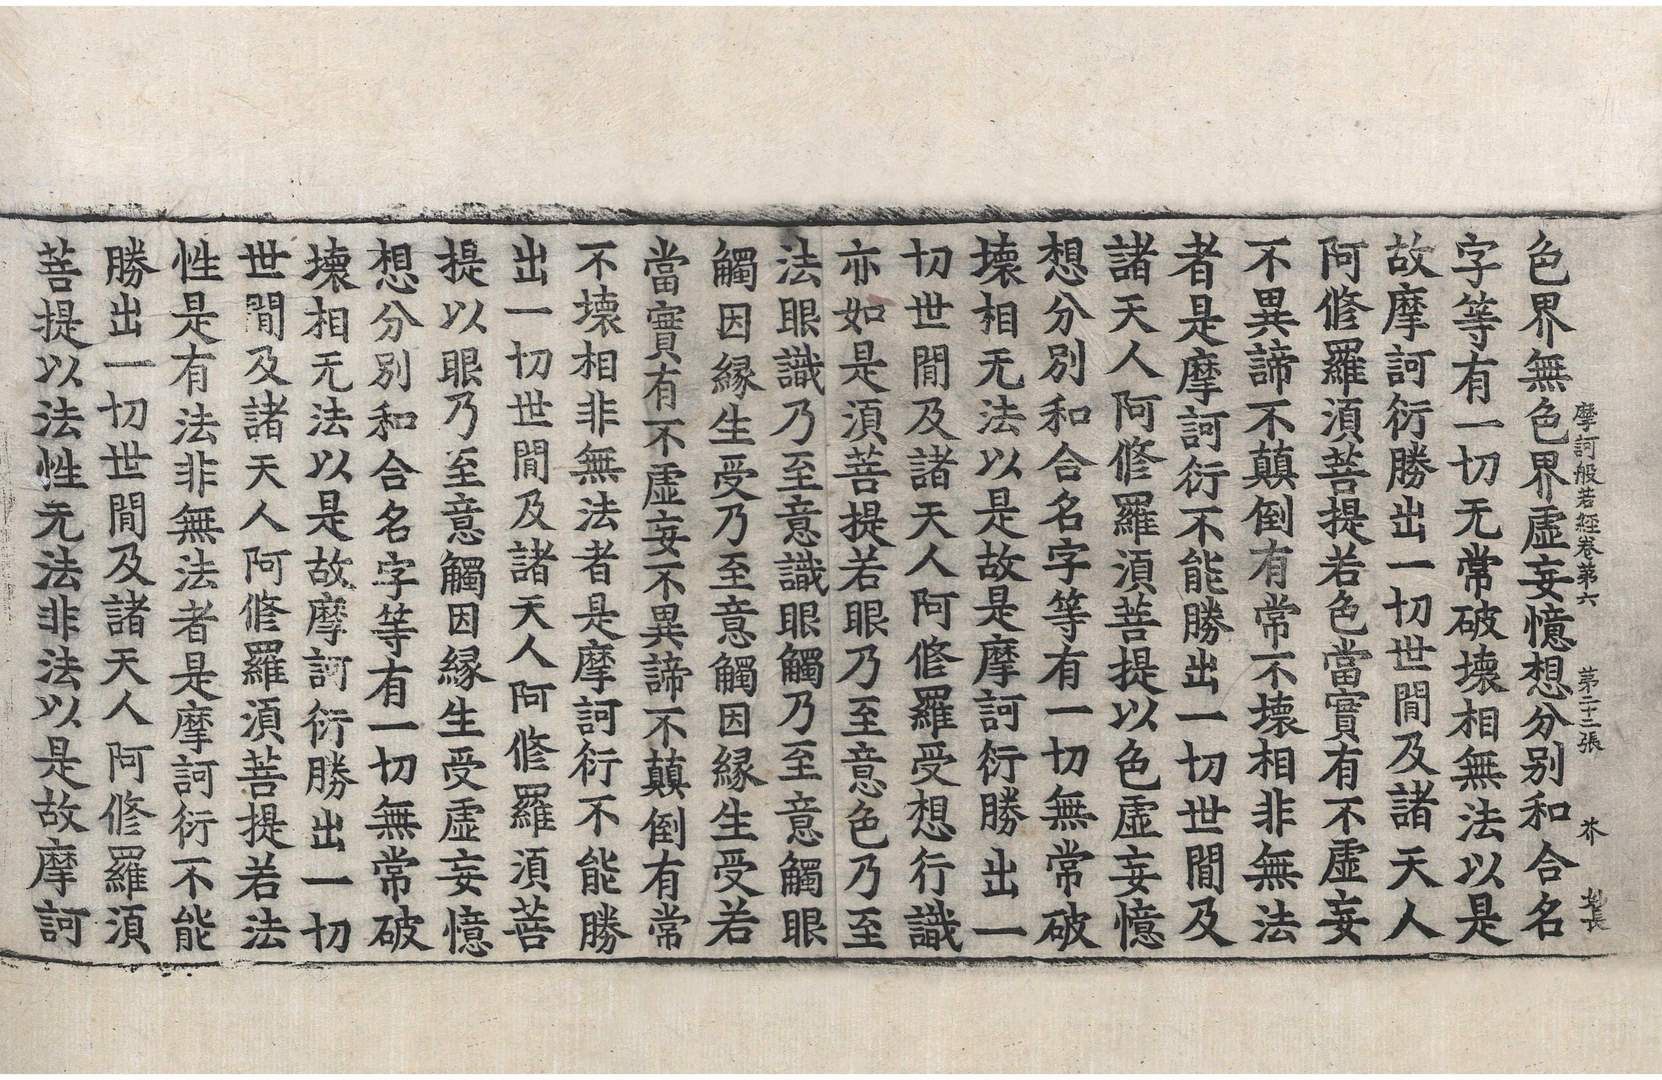 摩訶般若經卷第六 第二十二張 芥
色界無色界虛妄憶想分別和合名
字等有一切无常破壞相無法以是
故摩訶衍勝出一切世間及諸天人
阿修羅須菩提若色當實有不虛妄
不異諦不顛倒有常不壞相非無法
者是摩訶衍不能勝出一切世間及
諸天人阿修羅須菩提以色虛妄憶
想分別和合名字等有一切無常破
壞相无法以是故是摩訶衍勝出一
切世間及諸天人阿修羅受想行識
亦如是須菩提若眼乃至意色乃至
法眼識乃至意識眼觸乃至意觸眼
觸因縁生受乃至意觸因縁生受若
當實有不虛妄不異諦不顛倒有常
不壞相非無法者是摩訶衍不能勝
出一切世間及諸天人阿修羅須菩
提以眼乃至意觸因縁生受虛妄憶
想分別和合名字等有一切無常破
壞相无法以是故摩訶衍勝出一切
世間及諸天人阿修羅須菩提若法
性是有法非無法者是摩訶衍不能
勝出一切世間及諸天人阿修羅須
菩提以法性无法非法以是故摩訶